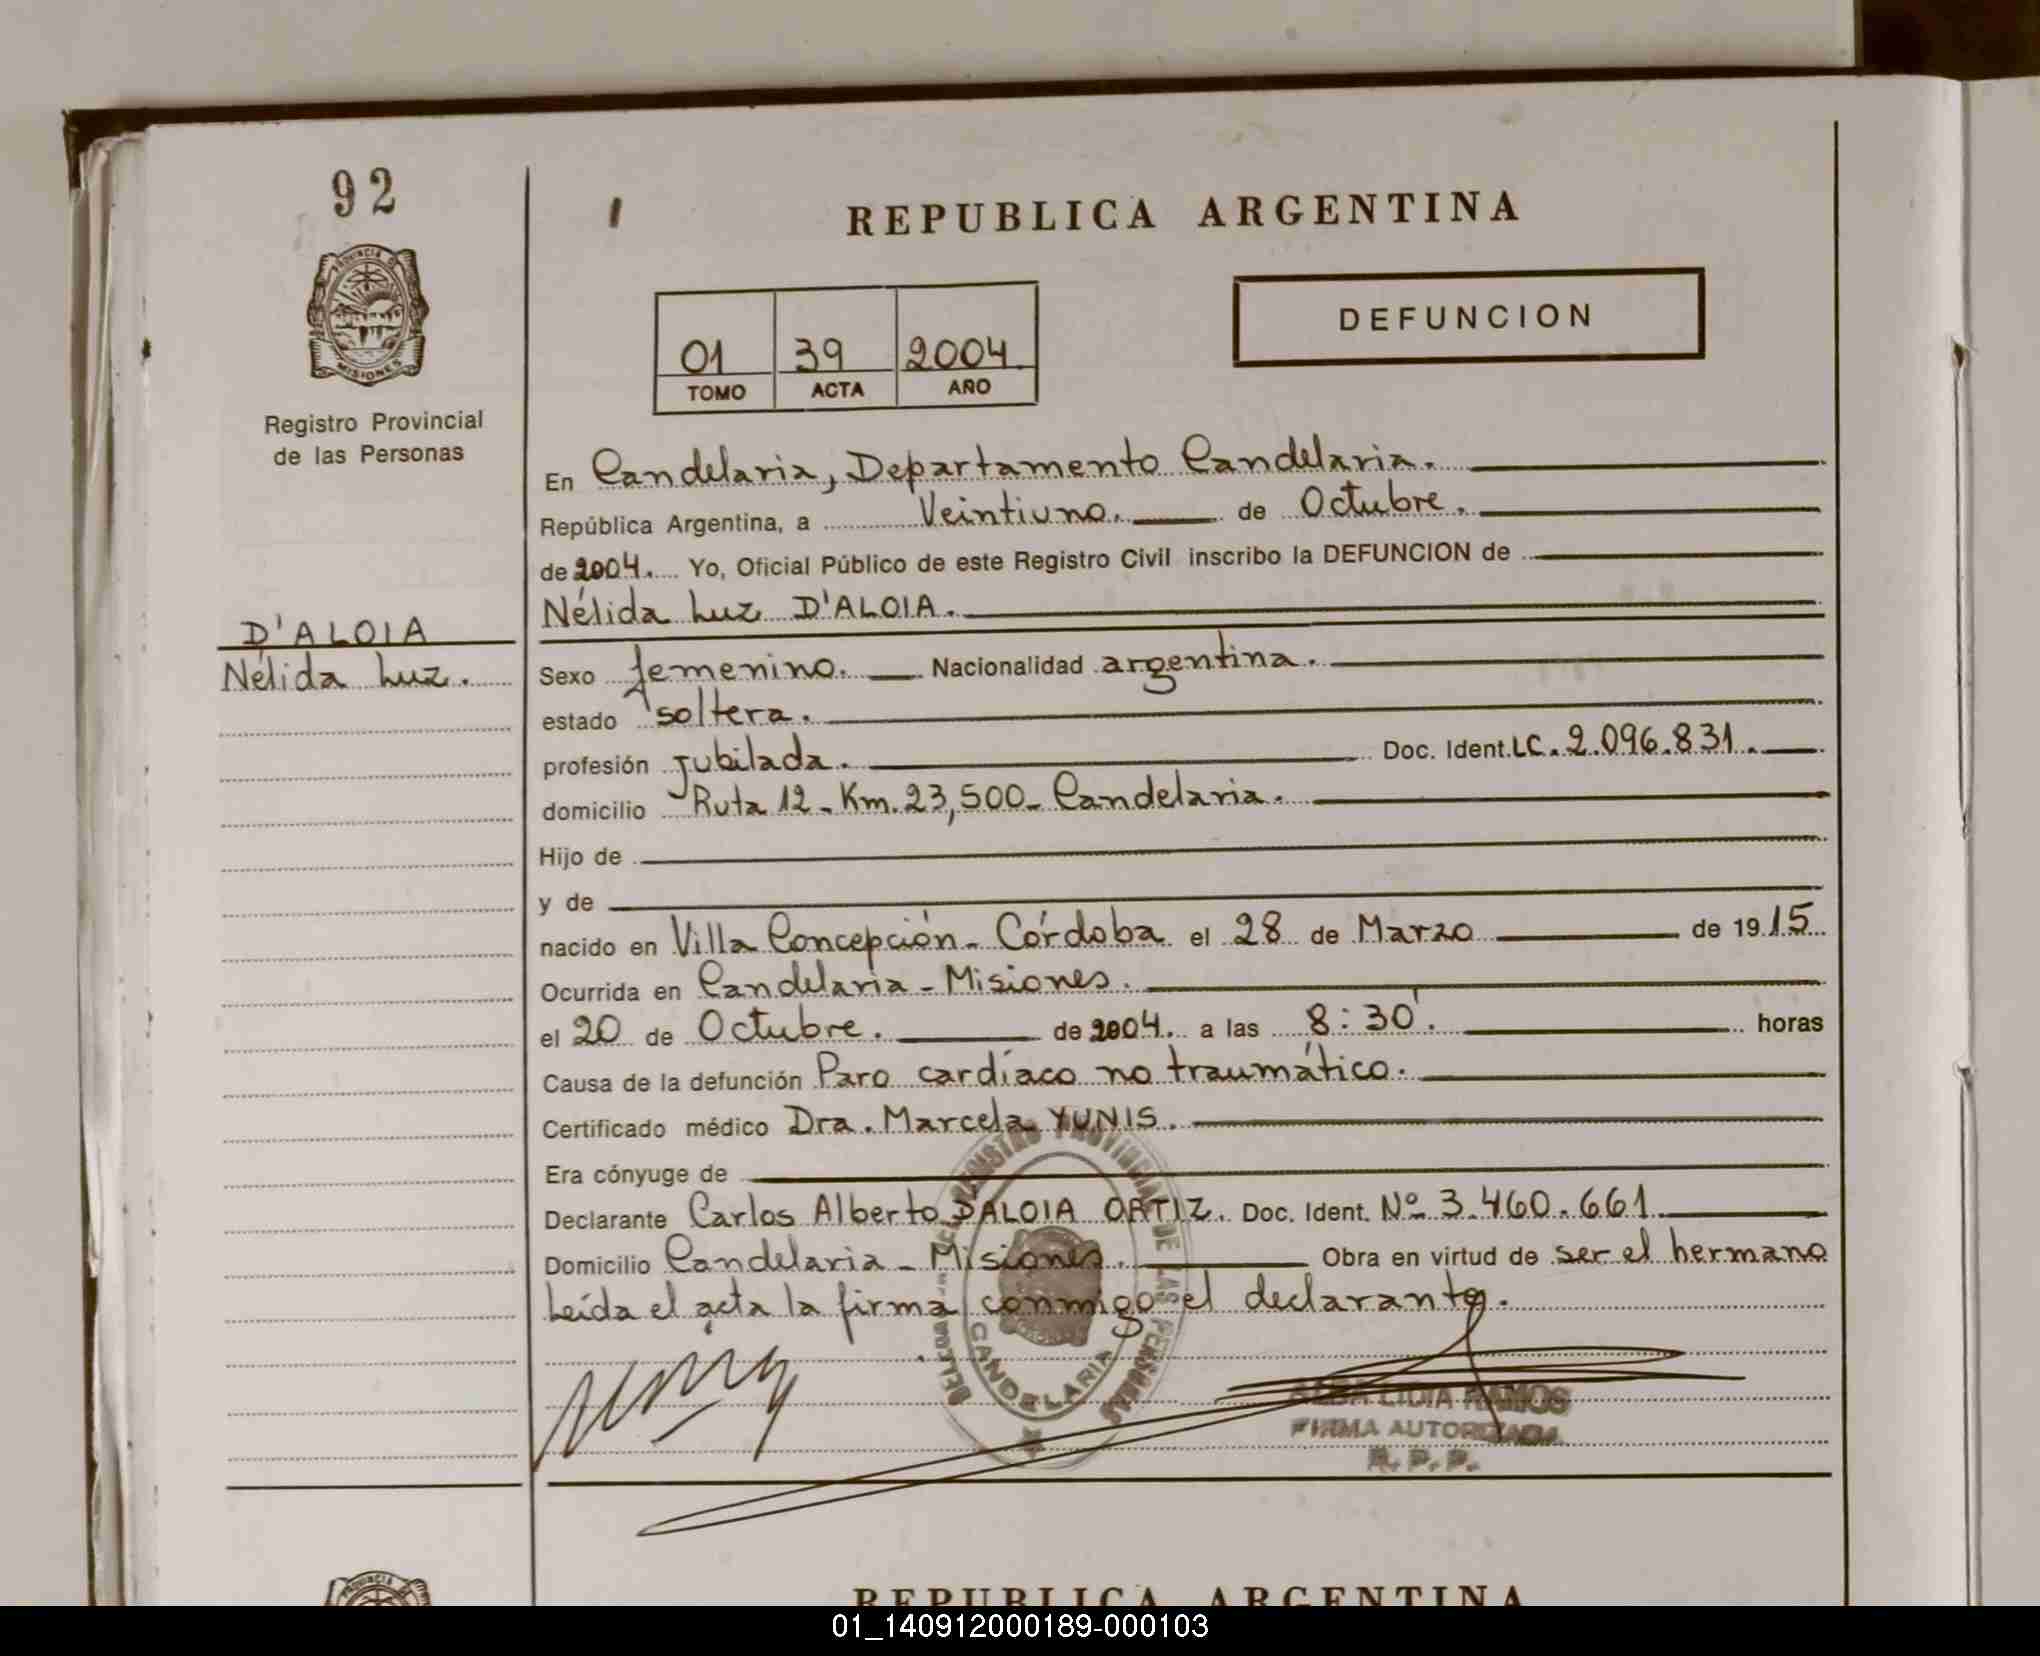 92
PROVINCIA DE
MISIONES
Registro Provincial
de las Personas
D'ALOIA
Nélida Luz.
REPUBLICA ARGENTINA
01 39 2004
TOMO ACTA AÑO
DEFUNCION
En Candelaria, Departamento Candelaria.
República Argentina, a Veintiuno. de Octubre.
de 2004. Yo, Oficial Público de este Registro Civil inscribo la DEFUNCION de
Nélida Luz D'ALOIA.
Sexo femenino. Nacionalidad argentina.
estado soltera.
profesión jubilada. Doc. Ident. LC. 2.096.831.
domicilio Ruta 12 - Km. 23,500 - Candelaria.
Hijo de
y de
nacido en Villa Concepción - Córdoba el 28 de Marzo de 1915
Ocurrida en Candelaria - Misiones.
el 20 de Octubre. de 2004. a las 8:30'. horas
Causa de la defunción Paro cardíaco no traumático.
Certificado médico Dra. Marcela YUNIS.
Era cónyuge de
Declarante Carlos Alberto D'ALOIA ORTIZ. Doc. Ident. Nº 3.460.661
Domicilio Candelaria - Misiones. Obra en virtud de ser el hermano
Leída el acta la firma conmigo el declarante.
REGISTRO PROVINCIAL DE LAS PERSONAS
CANDELARIA
ALBA LIDIA RAMOS
FIRMA AUTORIZADA
R. P. P.
PROVINCIA DE
REPUBLICA ARGENTINA
01_140912000189-000103